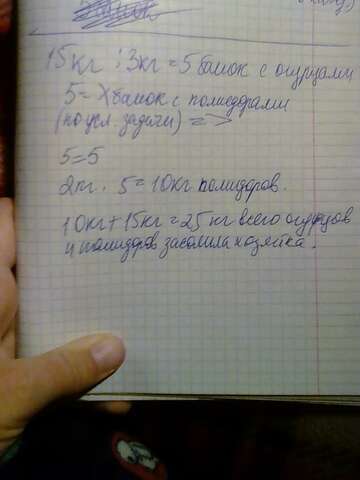 15кг : 3кг = 5 банок с огурцами
5 = X банок с помидорами
(по усл. задачи) =>
5=5
2кг. 5 = 10кг помидоров.
10кг + 15кг = 25 кг всего огурцов
и помидоров засолила хозяйка.